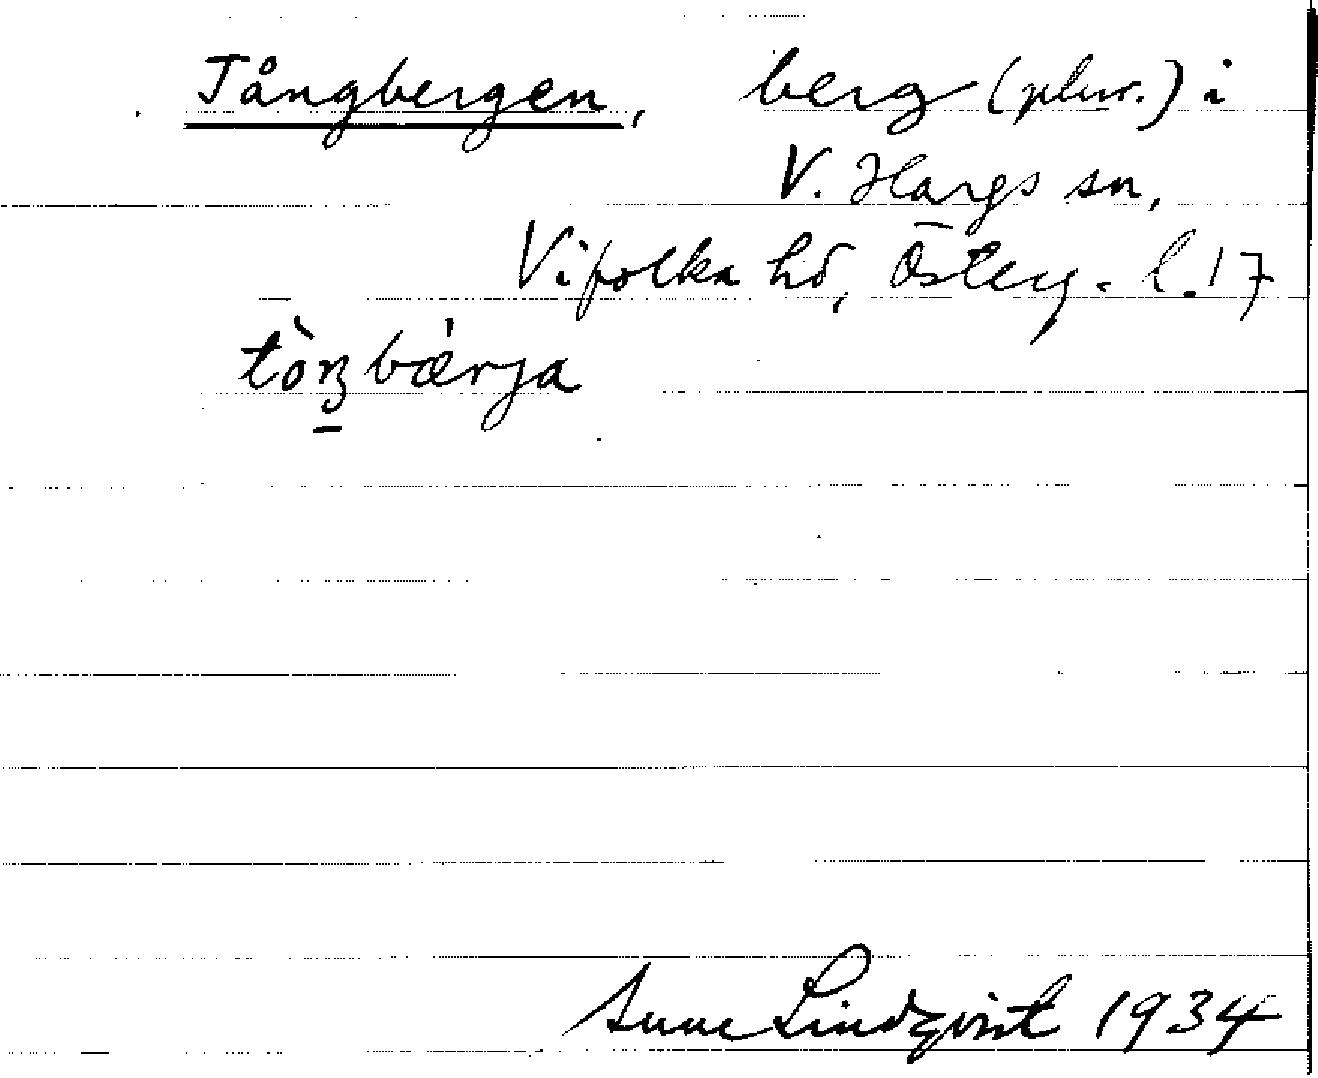 Tångbergen, berg (plur.) i
V. Hargs sn,
Vifolka hd, Österg. l. 17
tòŋbǽrja
Sune Lindqvist 1934